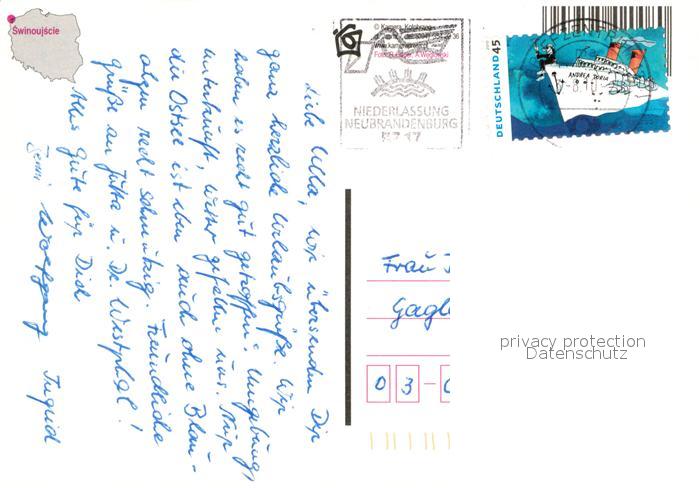 Świnoujście
© Kamera, Kołobrzeg
NIEDERLASSUNG
NEUBRANDENBURG
DEUTSCHLAND 45
ANDREA DORIA
Liebe Ulla, wir übersenden Dir
ganz herzliche Urlaubsgrüße. Wir
haben es recht gut getroffen: Umgebung,
Unterkunft, Wetter gefallen uns. Nur
die Ostsee ist eben auch ohne Blau-
algen recht schmutzig. Freundliche
Grüße an Jutta u. Dr. Westphal!
Alles Gute für Dich
Wolfgang Ingrid
Frau
03-
privacy protection
Datenschutz